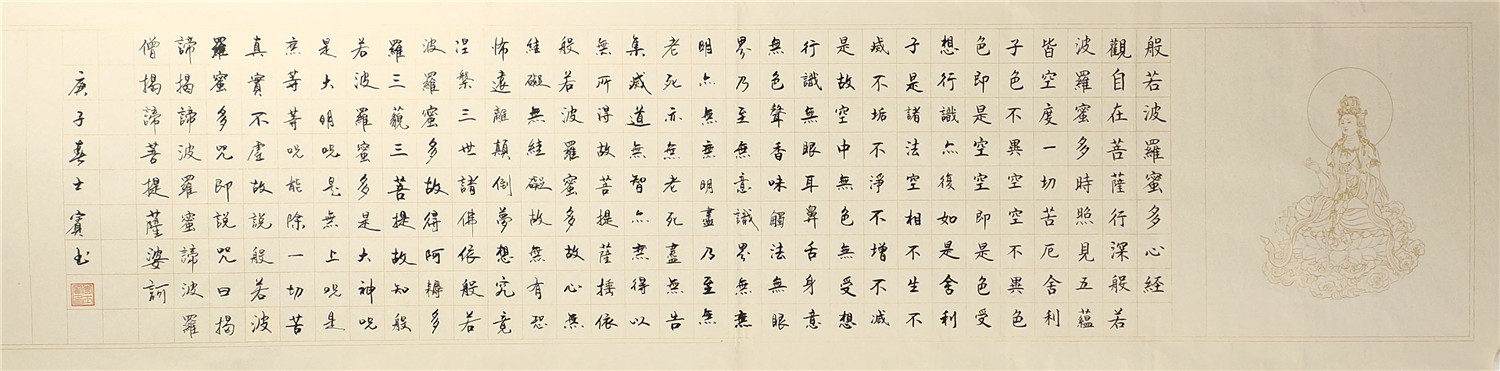 般若波羅蜜多心経
觀自在菩薩行深般若
波羅蜜多時照見五蘊
皆空度一切苦厄舍利
子色不異空空不異色
色即是空空即是色受
想行識亦復如是舍利
子是諸法空相不生不
滅不垢不淨不增不減
是故空中無色無受想
行識無眼耳鼻舌身意
無色聲香味觸法無眼
界乃至無意識界無無
明亦無無明盡乃至無
老死亦無老死盡無告
集滅道無智亦無得以
無所得故菩提薩埵依
般若波羅蜜多故心無
絓礙無絓礙故無有恐
怖遠離顛倒夢想究竟
涅槃三世諸佛依般若
波羅蜜多故得阿耨多
羅三藐三菩提故知般
若波羅蜜多是大神咒
是大明咒是無上咒是
無等等咒能除一切苦
真實不虛故說般若波
羅蜜多咒即說咒曰揭
諦揭諦波羅蜜諦波羅
僧揭諦菩提薩婆訶
庚子春士賓书